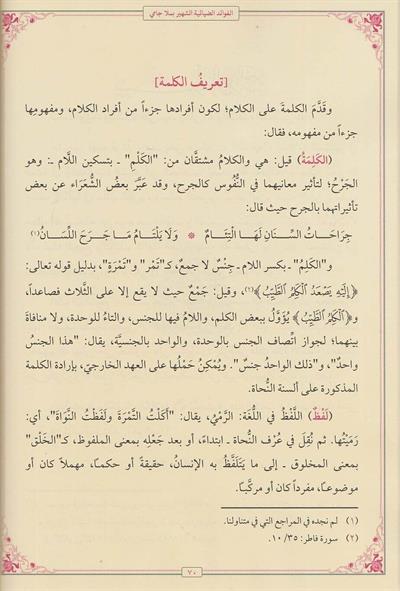 الفوائد الضيائية الشهير بملا جامي
[تعريفُ الكلمة]
وقَدَّمَ الكلمةَ على الكلام؛ لكون أفرادها جزءاً من أفراد الكلام، ومفهومِها
جزءاً من مفهومه، فقال:
(الكَلِمَةُ) قيل: هي والكلامُ مشتقَّان من: "الكَلْمِ" ـ بتسكين اللَّام ـ: وهو
الجَرْحُ؛ لتأثير معانيهما في النُّفُوس كالجرح، وقد عبَّرَ بعضُ الشُّعَرَاء عن بعض
تأثيراتهما بالجرح حيث قال:
جِرَاحَاتُ السِّنَانِ لَهَا الْتِئَامُ * وَلَا يَلْتَامُ مَا جَرَحَ اللِّسَانُ(١)
و"الكَلِمُ" ـ بكسر اللام ـ جِنْسٌ لا جمعٌ، كـ"تَمْرٍ" و"تَمْرَةٍ"، بدليل قوله تعالى:
﴿إِلَيْهِ يَصْعَدُ الْكَلِمُ الطَّيِّبُ﴾(٢)، وقيل: جَمْعٌ حيث لا يقع إلا على الثَّلاث فصاعداً،
و﴿الْكَلِمُ الطَّيِّبُ﴾ يُؤَوَّلُ ببعض الكلم، واللامُ فيها للجنس، والتاءُ للوحدة، ولا منافاةَ
بينهما؛ لجواز اتِّصاف الجنس بالوحدة، والواحد بالجنسيَّة، يقال: "هذا الجنسُ
واحدٌ"، و"ذلك الواحدُ جنسٌ". ويُمْكِنُ حَمْلُها على العهد الخارجيّ، بإرادة الكلمة
المذكورة على ألسنة النُّحاة.
(لَفْظٌ) اللَّفْظُ في اللُّغَة: الرَّمْيُ، يقال: "أَكَلْتُ التَّمْرَةَ ولَفَظْتُ النَّوَاةَ"، أي:
رَمَيْتُهَا. ثم نُقِلَ في عُرْف النُّحاة ـ ابتداءً، أو بعد جَعْلِهِ بمعنى الملفوظ، كـ"الخَلْقِ"
بمعنى المخلوق ـ إلى ما يَتَلَفَّظُ به الإنسانُ، حقيقةً أو حكماً، مهملاً كان أو
موضوعاً، مفرداً كان أو مركَّباً.
(١) لم نجده في المراجع التي في متناولنا.
(٢) سورة فاطر: ٣٥/ ١٠.
٧٠